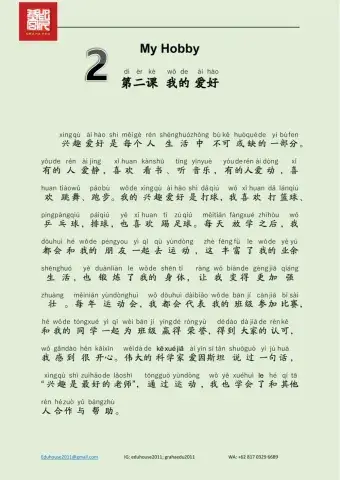 My Hobby
2
dì èr kè wǒ de ài hào
第二课 我的 爱好
xìngqù ài hào shì měigè rén shēnghuózhōng bù kě huòquēde yí bùfen
兴趣 爱好 是 每个 人 生 活 中 不可 或缺的 一部分。
yǒude rén ài jìng xǐ huan kànshū tīng yīnyuè yǒuderén ài dòng xǐ
有的 人 爱静，喜欢 看书、听 音乐，有的人爱动，喜
huan tiàowǔ pǎobù wǒde xìngqù ài hào shì dǎqiú wǒ xǐ huan dǎ lánqiú
欢 跳舞、跑步。我的 兴趣 爱好 是 打球，我喜欢 打篮球、
pīngpāngqiú páiqiú yě xǐ huan tī zú qiú měitiān fàngxué zhīhòu wǒ
乒乓球，排球，也喜欢 踢足球。每天 放学 之后，我
dōuhuì hé wǒde péngyou yì qǐ qù yùndòng zhè fēng fù le wǒde yè yú
都会 和 我的 朋友 一起 去 运动，这 丰富 了 我的 业余
shēnghuó yě duànliàn le wǒde shēn tǐ ràng wǒ biànde gèngjiā qiáng
生活，也 锻炼 了 我的 身体，让 我 变得 更加 强
zhuàng měinián yùndònghuì wǒ dōuhuì dàibiǎo wǒde bān jí cānjiā bǐ sài
壮。每年 运动会，我 都会 代表 我的 班级 参加 比赛，
hé wǒde tóngxué yì qǐ wèi bān jí yíngdé róng yù dédào dà jiā de rèn kě
和 我的 同学 一起 为 班级 赢得 荣誉，得到 大家 的 认可，
wǒ gǎndào hěn kāixīn wěi dà de kē xué jiā ài yīn sī tǎn shuōguò yí jù huà
我 感到 很 开心。伟大的 科学家 爱因斯坦 说过 一句话，
xìngqù shì zuìhǎode lǎoshī tōngguò yùndòng wǒ yě xuéhuì le hé qí tā
“兴趣 是 最好 的 老师”，通过 运动，我 也 学会 了 和 其他
rén hézuò yǔ bāngzhù
人 合作 与 帮助。
Eduhouse2011@gmail.com IG: eduhouse2011; grahaedu2011 WA: +62 817 0329 6689